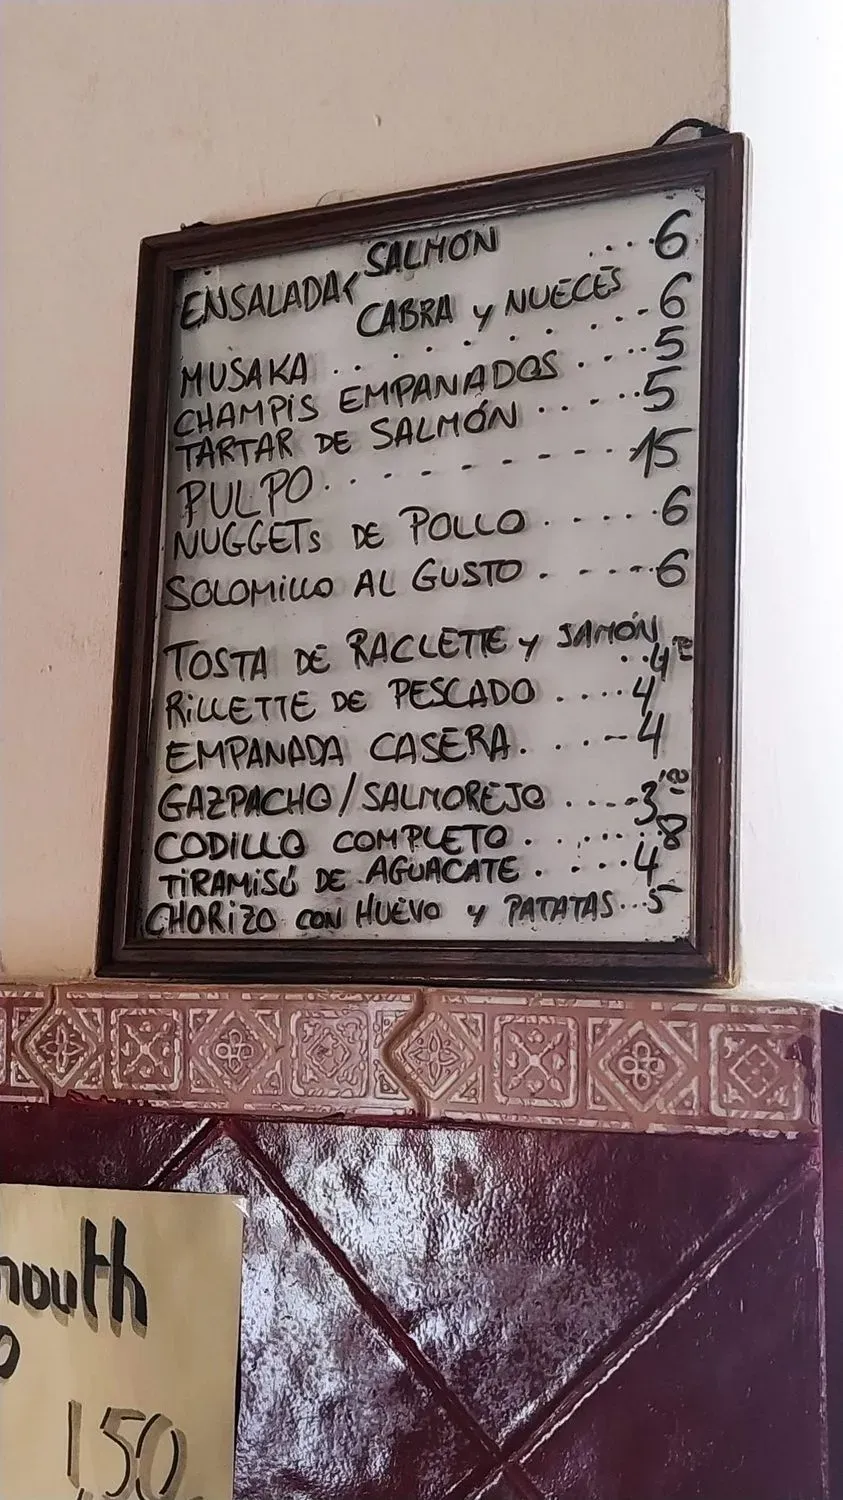 ENSALADA< SALMÓN ....6
CABRA y NUECES
MUSAKA .........6
CHAMPIS EMPANADOS ....5
TARTAR DE SALMÓN .....5
PULPO..........15
NUGGETs DE POLLO.....6
SOLOMILLO AL GUSTO.....6
TOSTA DE RACLETTE y JAMÓN
..4
RiLLETTE DE PESCADO ....4
EMPANADA CASERA.....4
GAZPACHO/SALMOREJO ....3
CODILLO COMPLETO......8
TiRAMISÚ DE AGUACATE.....4
CHORiZO CON HUEVO y PATATAS...5
outh
150